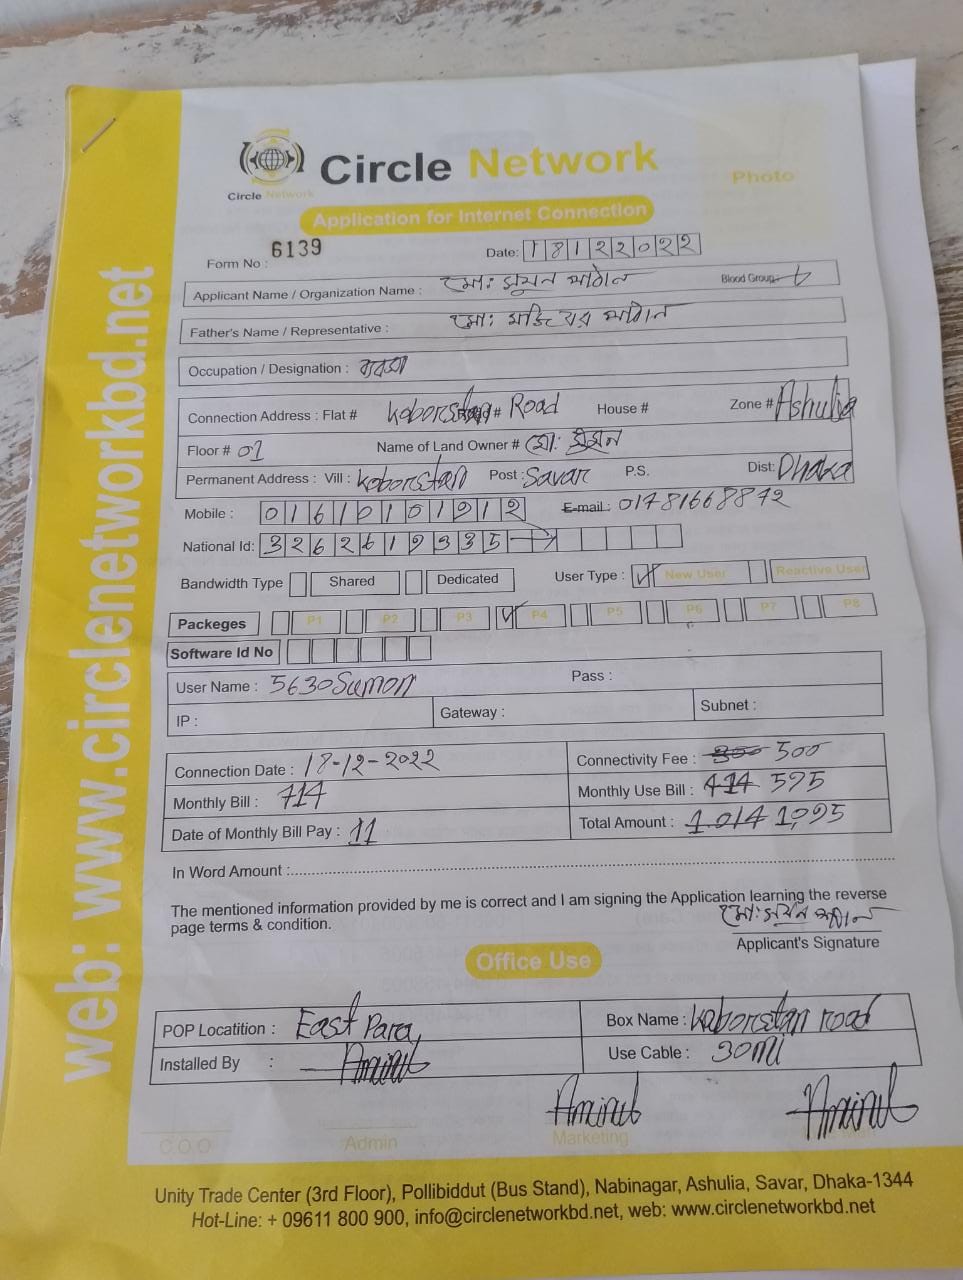 Circle Network
Circle Network
Photo
Application for Internet Connection
Form No : 6139
Date: 18122022
Applicant Name / Organization Name : মোঃ সুমন
Blood Group:
Father's Name / Representative : মোঃ
Occupation / Designation :
Connection Address : Flat # Road House # Zone # Ashulia
Floor # 01 Name of Land Owner # মো:
Permanent Address : Vill : koborstan Post : Savar P.S. Dist: Dhaka
Mobile : E-mail : 01781668872
National Id:
Bandwidth Type Shared Dedicated User Type : New User Reactive User
Packeges P1 P2 P3 P4 P5 P6 P7 P8
Software Id No
User Name : 5630Sumon Pass :
IP : Gateway : Subnet :
Connection Date : 18-12-2022 Connectivity Fee : 500
Monthly Bill : 714 Monthly Use Bill : 414 595
Date of Monthly Bill Pay : 11 Total Amount : 1.014 1,095
In Word Amount :
The mentioned information provided by me is correct and I am signing the Application learning the reverse
page terms & condition.
মো: সুমন
Applicant's Signature
Office Use
POP Locatition : East Para, Box Name : koborstan road
Installed By : Aminul Use Cable : 30mi
Aminul Aminul
C.O.O Admin Marketing
Unity Trade Center (3rd Floor), Pollibiddut (Bus Stand), Nabinagar, Ashulia, Savar, Dhaka-1344
Hot-Line: + 09611 800 900, info@circlenetworkbd.net, web: www.circlenetworkbd.net
web: www.circlenetworkbd.net